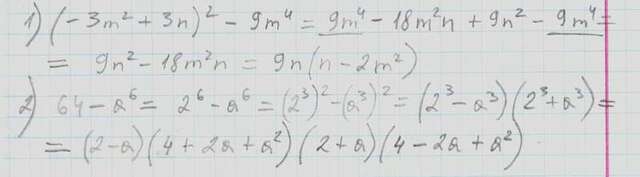 1) (-3m² + 3n)² - 9m⁴ = 9m⁴ - 18m²n + 9n² - 9m⁴ =
= 9n² - 18m²n = 9n(n - 2m²)
2) 64 - a⁶ = 2⁶ - a⁶ = (2³)² - (a³)² = (2³ - a³)(2³ + a³) =
= (2 - a)(4 + 2a + a²)(2 + a)(4 - 2a + a²)